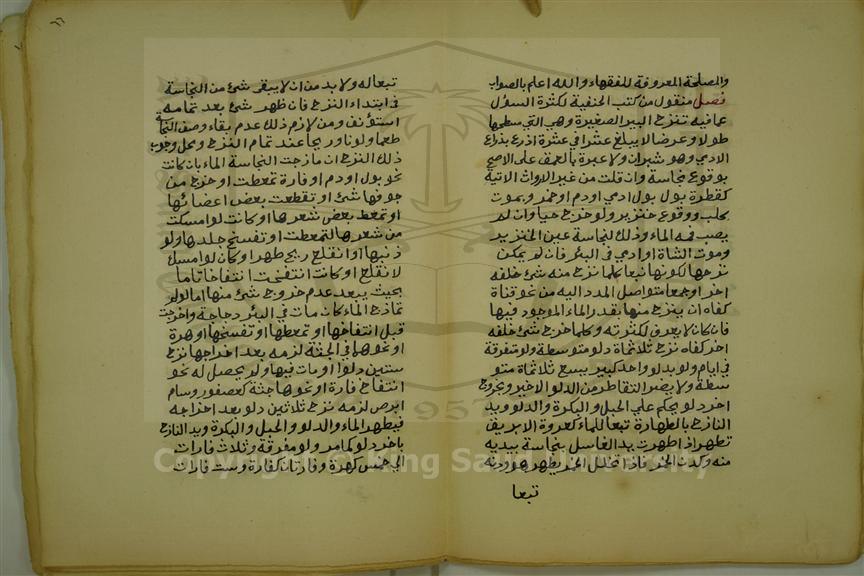 والمصلحة المعروفة للفقهاء والله اعلم بالصواب
فصل منقول من كتب الحنفية لكثرة السؤل
عما فيه تنزح البير الصغيرة وهي التي سطحها
طولا وعرضا لا يبلغ عشرا في عشرة اذرع بذراع
الادمي وهو شبران ولا عبرة بالعمق على الاصح
بوقوع نجاسة وان قلت من غير الارواث الاتية
كقطرة بول بول ادمي اودم او خمر وبموت
كلب ووقوع خنزير ولو خرج حيا وان لم
يصب فمه الماء وذلك لنجاسة عين الخنزير
وموت الشاة او ادمي في البئر فان لم يمكن
نزحها لكونها نبعا كلما نزح منه شئ خلفه
اخر او جمعا متواصل المدد اليه من نحو قناة
كفاه ان ينزح منها بقدر الماء الموجود فيها
فان كان لا يعرف لكثرته وكلما خرج شئ خلفه
اخر كفاه نزح ثلاثماة دلو متوسطة ولو متفرقة
في ايام ولو بدلو واحد كبير يسع ثلاثماة متو
سطة ولا يضر التقاطر من الدلو الاخير وبخروج
اخر دلو يحكم على الحبل والبكرة والدلو ويد
النازح بالطهارة تبعا للماء كعروة الابريق
تطهر اذا طهرت يد الغاسل بنجاسة بيديه
منه وكدن الخمر فاذا تخلل الخمر يطهر هو ودنه
تبعا
تبعا له ولا بد من ان لا يبقى شئ من النجاسة
في ابتداء النزح فان ظهر شئ بعد تمامه
استؤنف ومن لازم ذلك عدم بقاء وصف النجاسة
طعما ولونا وريحا عند تمام النزح ومحل وجوب
ذلك النزح ان مازجت النجاسة الماء بان كانت
نحو بول اودم او فارة تمعطت او خرج من
جوفها شئ او تقطعت بعض اعضائها
او تمعط بعض شعرها او كانت لو امسكت
من شعرها لتمعطت او تفسخ جلدها ولو
ذنبها او انقلع ريح طهر او كان لو امسك
لانقلع او كانت انتفخت انتفاخا تاما
بحيث يبعد عدم خروج شئ منها اما لو لم
تمازج الماء كان مات في البئر دجاجة واخرجت
قبل انتفاخها او تمعطها او تفسخها او هرة
او نحوها في الجثة لزمه بعد اخراجها نزح
ستين دلوا او مات فيها ولم يحصل له نحو
انتفاخ فارة او نحوها جثة كعصفور وسام
ابرص لزمه نزح ثلاثين دلو بعد اخراجه
فيطهر الماء والدلو والحبل والبكرة ويد النازح
باخر دلو كما مر ولو مفرقة وثلاث فارات
الى خمس كهرة وفارتان كفارة وست فارات
Copyright © King Saud University
1957